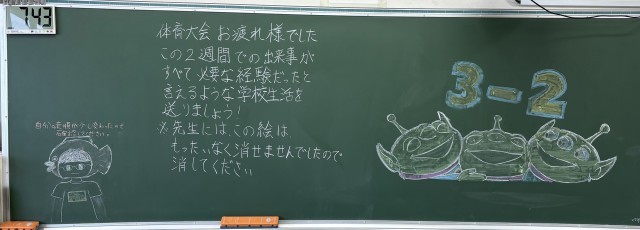 743
体育大会 お疲れ様でした
この2週間での出来事が
すべて必要な経験だったと
言えるような学校生活を
送りましょう！
※先生には、この絵は
もったいなく消せませんでしたので
消してください
3-2